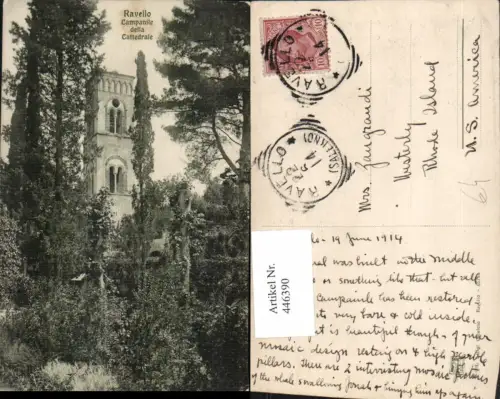 Ravello
Campanile
della
Cattedrale
RAVELLO
14
RAVELLO
(SALERNO)
Mrs.
Westerly
Rhode Island
U. S. America
64
Artikel Nr.
446390
19 June 1914
was built in the Middle
or something like that - but
Campanile has been restored
very bare & cold inside.
is beautiful though - of
mosaic design resting on 6 high marble
pillars. There are 2 interesting mosaic pictures
of the whale swallowing Jonah & bringing him up again